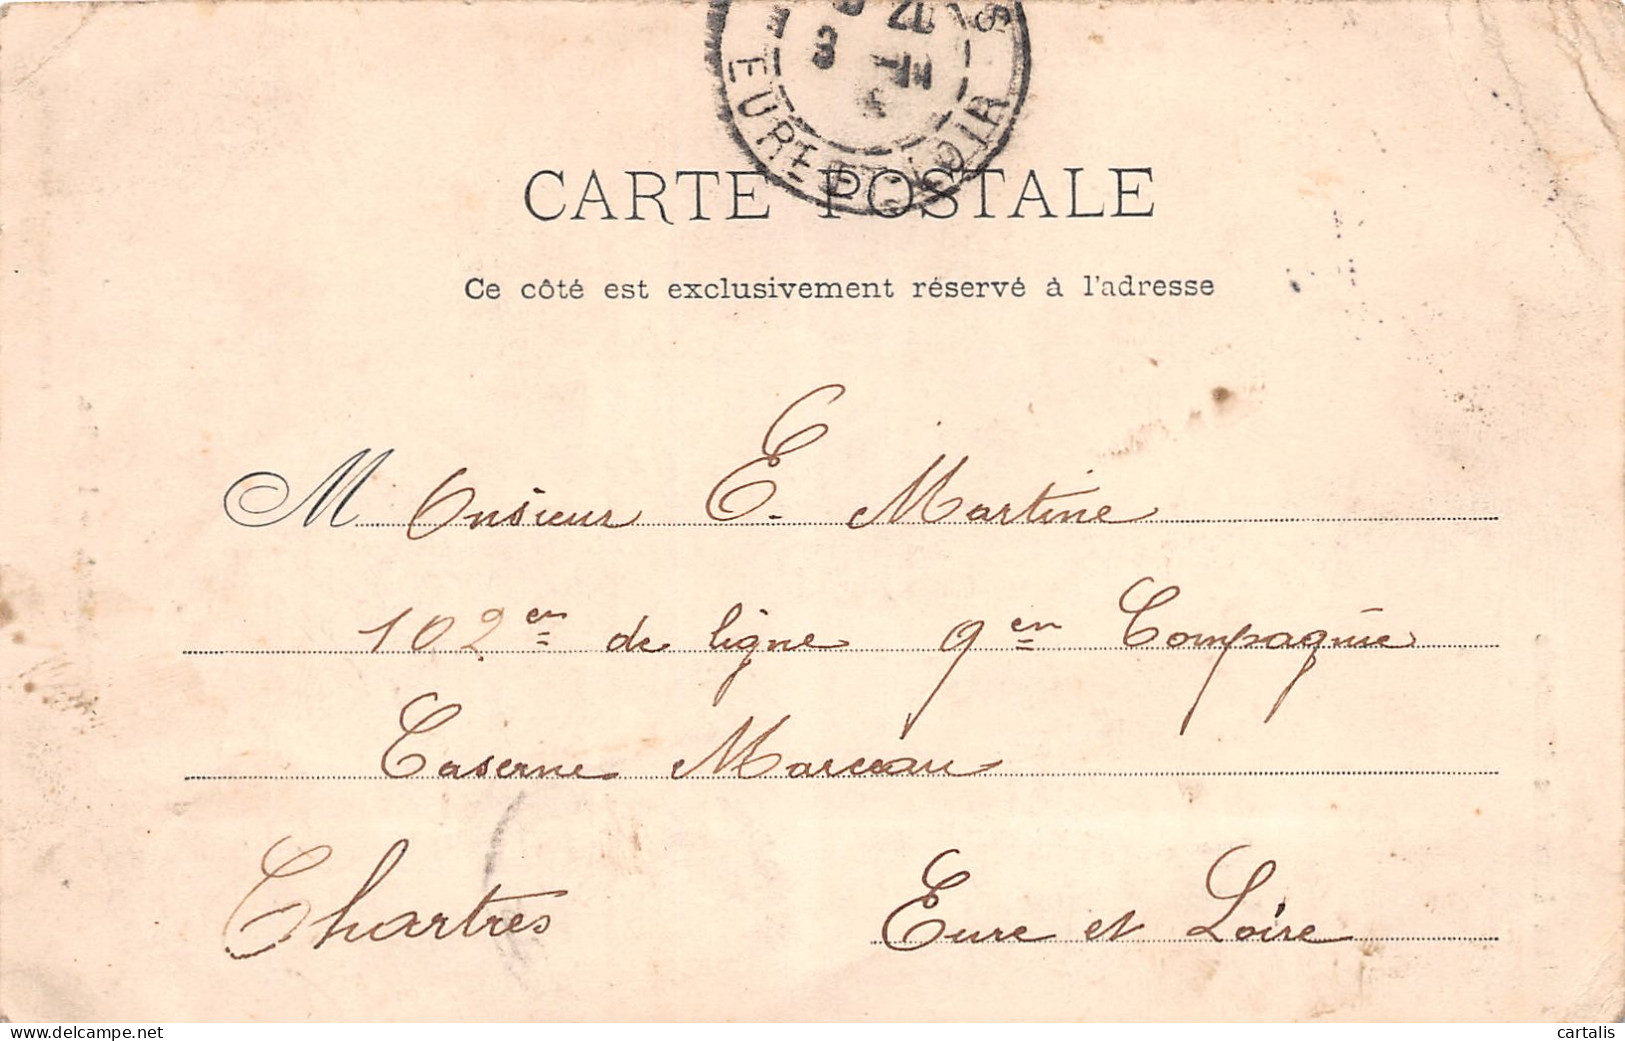 EURE-ET-LOIR
CARTE POSTALE
Ce côté est exclusivement réservé à l'adresse
Monsieur E. Martine
102em de ligne 9em Compagnie
Caserne Marceau
Chartres Eure et Loire
www.delcampe.net
cartalis